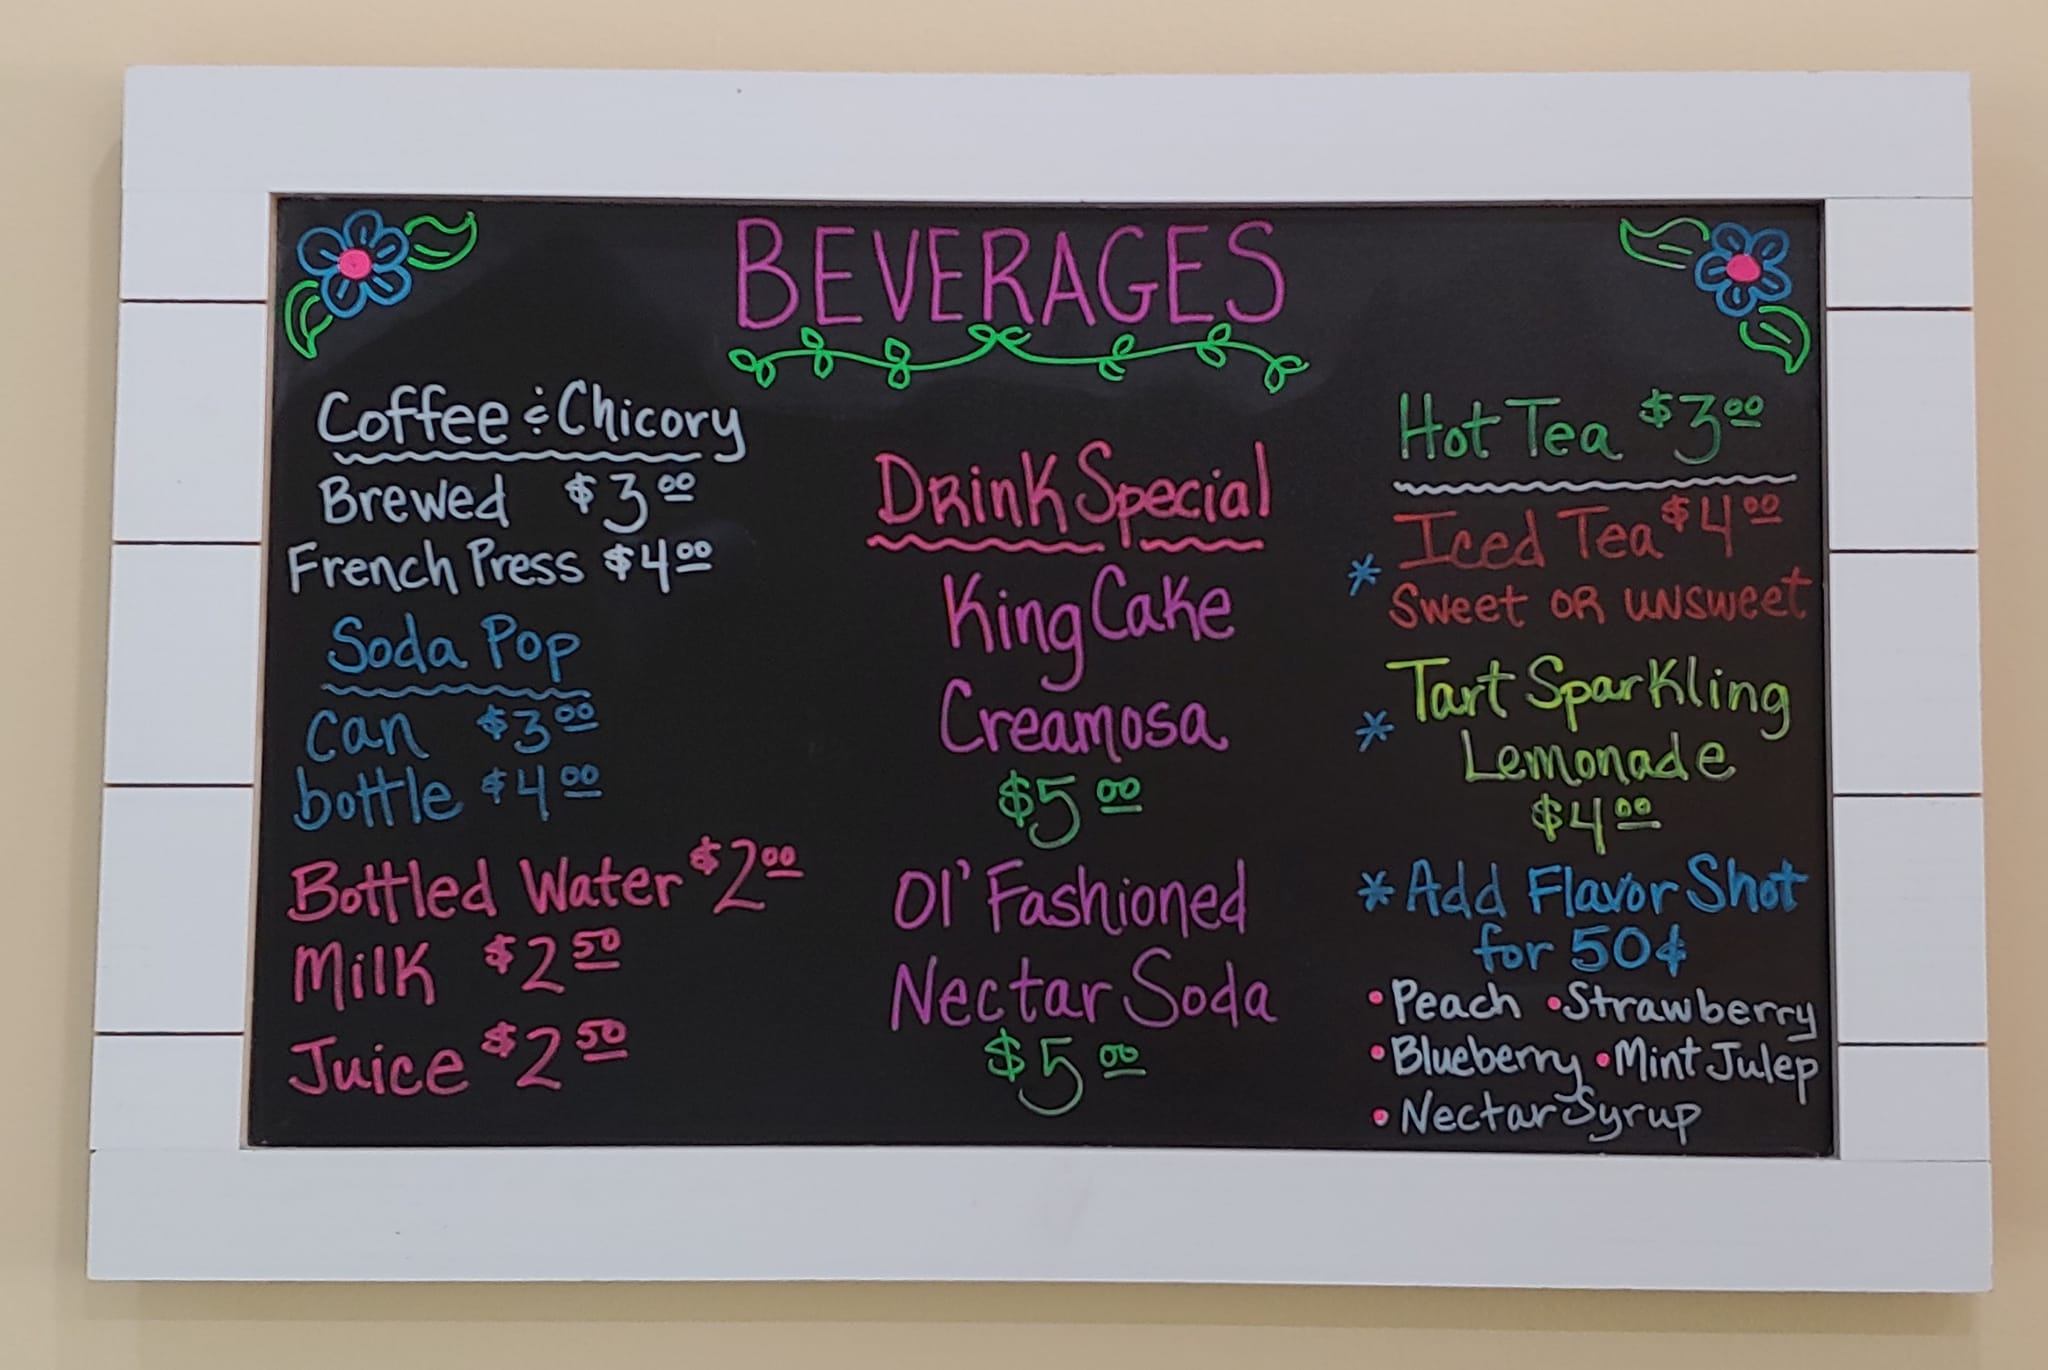 BEVERAGES
Coffee & Chicory
Brewed $3.00
French Press $4.00
Soda Pop
can $3.00
bottle $4.00
Bottled Water $2.00
Milk $2.50
Juice $2.50
Drink Special
King Cake
Creamosa
$5.00
Ol' Fashioned
Nectar Soda
$5.00
Hot Tea $3.00
Iced Tea $4.00
* Sweet OR unsweet
Tart Sparkling
* Lemonade
$4.00
* Add Flavor Shot
for 50¢
• Peach • Strawberry
• Blueberry • Mint Julep
• Nectar Syrup